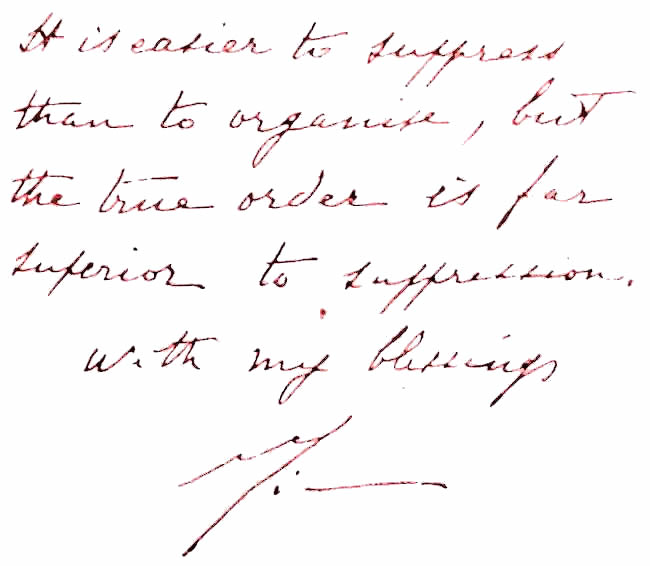 It is easier to suppress
than to organise, but
the true order is far
superior to suppression.
with my blessings